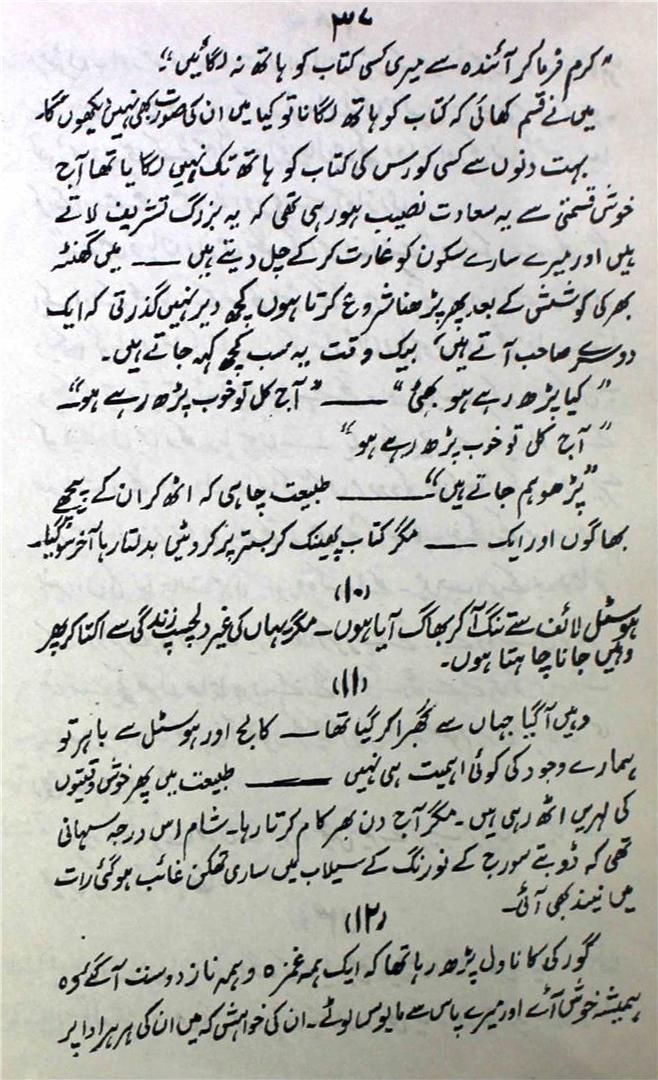 ۳۷
"کرم فرما کر آئندہ سے میری کسی کتاب کو ہاتھ نہ لگائیں"۔
میں نے قسم کھائی کہ کتاب کو ہاتھ لگانا تو کیا میں ان کی صورت بھی نہیں دیکھوں گا۔
بہت دنوں سے کسی کورس کی کتاب کو ہاتھ تک نہیں لگایا تھا آج
خوش قسمتی سے یہ سعادت نصیب ہو رہی تھی کہ یہ بزرگ تشریف لاتے
ہیں اور میرے سارے سکون کو غارت کر کے چل دیتے ہیں — میں گھنٹہ
بھر کی کوشش کے بعد پھر پڑھنا شروع کرتا ہوں کچھ دیر نہیں گذرتی کہ ایک
دوسرے صاحب آتے ہیں، بیک وقت یہ سب کچھ کہہ جاتے ہیں۔
"کیا پڑھ رہے ہو بھئی" — "آج کل تو خوب پڑھ رہے ہو"
"آج کل تو خوب پڑھ رہے ہو"
"پڑھو ہم جاتے ہیں" — طبیعت چاہی کہ اٹھ کر ان کے پیچھے
بھاگوں اور ایک — مگر کتاب پھینک کر بستر پر کروٹیں بدلتا رہا آخر سو گیا۔
(۱۰)
ہوسٹل لائف سے تنگ آکر بھاگ آیا ہوں۔ مگر یہاں کی غیر دلچسپ زندگی سے اکتا کر پھر
وہیں جانا چاہتا ہوں۔
(۱۱)
وہیں آگیا جہاں سے گھبرا کر گیا تھا — کالج اور ہوسٹل سے باہر تو
ہمارے وجود کی کوئی اہمیت ہی نہیں — طبیعت میں پھر خوش وقتیوں
کی لہریں اٹھ رہی ہیں۔ مگر آج دن بھر کام کرتا رہا۔ شام اس درجہ سہانی
تھی کہ ڈوبتے سورج کے نور رنگ کے سیلاب میں ساری تھکن غائب ہو گئی رات
میں نیند بھی آئی۔
(۱۲)
گورکی کا ناول پڑھ رہا تھا کہ ایک ہمہ غمزہ و ہمہ ناز دوست آگئے وہ
ہمیشہ خوش آئے اور میرے پاس سے مایوس لوٹے۔ ان کی خواہش کہ میں ان کی ہر ہر ادا پر